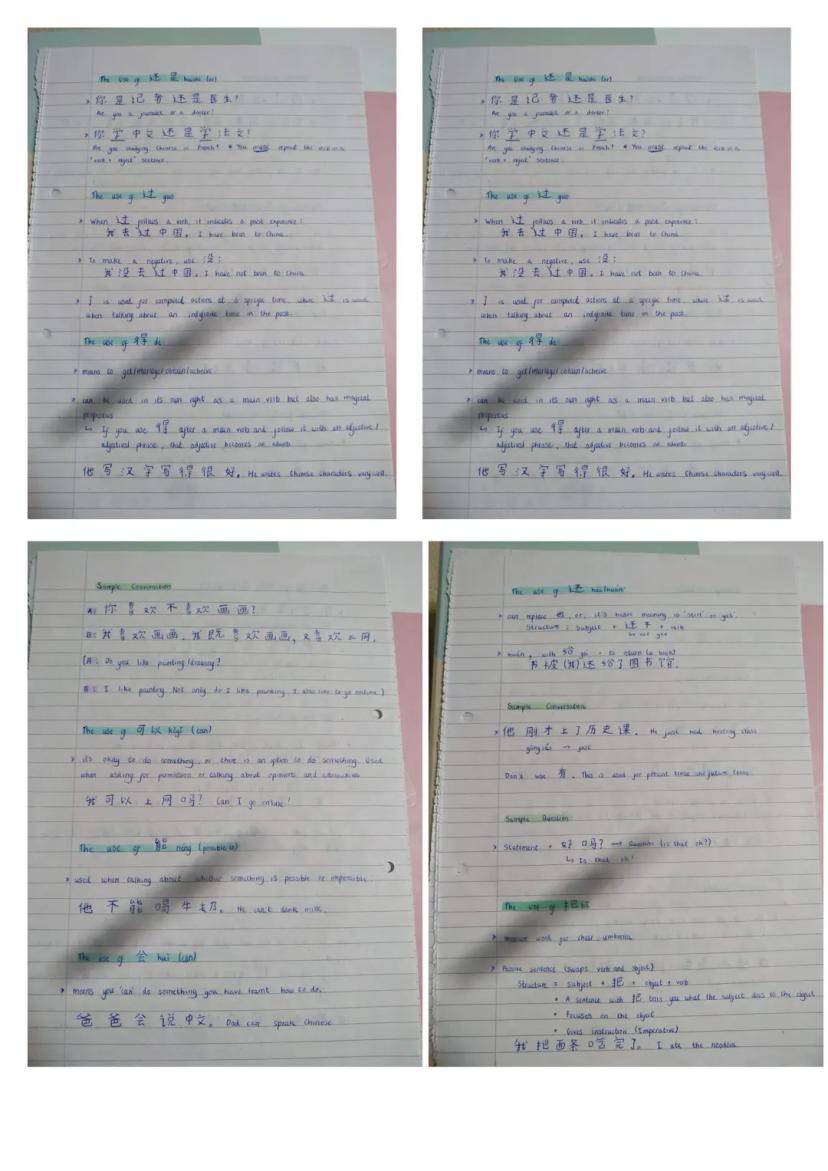 The use of 还是 haishi (or)
> 你是记者还是医生?
Are you a journalist or a doctor?
> 你学中文还是学法文?
Are you studying Chinese or French? * You must repeat the verb in a
'verb + object' sentence.
The use of 过 guo
> When 过 follows a verb it indicates a past experience:
我去过中国。 I have been to China.
> To make a negative, use 没:
我没去过中国。 I have not been to China.
> 了 is used for completed actions at a specific time, while 过 is used
when talking about an indefinite time in the past.
The use of 得 de
> means to get/manage/obtain/acheive
> can be used in its own right as a main verb but also has magical
properties
↳ If you use 得 after a main verb and follow it with an adjective/
adjectival phrase, that adjective becomes an adverb.
他写汉字写得很好。 He writes Chinese characters very well.
The use of 还是 haishi (or)
> 你是记者还是医生?
Are you a journalist or a doctor?
> 你学中文还是学法文?
Are you studying Chinese or French? * You must repeat the verb in a
'verb + object' sentence.
The use of 过 guo
> When 过 follows a verb it indicates a past experience:
我去过中国。 I have been to China.
> To make a negative, use 没:
我没去过中国。 I have not been to China.
> 了 is used for completed actions at a specific time, while 过 is used
when talking about an indefinite time in the past.
The use of 得 de
> means to get/manage/obtain/acheive
> can be used in its own right as a main verb but also has magical
properties
↳ If you use 得 after a main verb and follow it with an adjective/
adjectival phrase, that adjective becomes an adverb.
他写汉字写得很好。 He writes Chinese characters very well.
Sample Conversation
A: 你喜欢不喜欢画画?
B: 我喜欢画画。我既喜欢画画, 又喜欢上网。
(A: Do you like painting/drawing?
B: I like painting. Not only do I like painting, I also like to go online.)
The use of 可以 kěyǐ (can)
> it's okay to do something, or there is an option to do something. Used
when asking for permission or talking about options and
我可以上网吗? Can I go online?
The use of 能 néng (possible to)
> used when talking about whether something is possible or impossible.
他不能喝牛奶。 He can't drink milk.
The use of 会 huì (can)
> means you 'can' do something you have learnt how to do.
爸爸会说中文。 Dad can speak Chinese.
The use of 还 hái/huán
> can replace 也, or, it's basic meaning is 'still' or 'yet'.
Structure: Subject + 还不 + verb
> huán, with 给 - to return (a book)
书 (我) 还给了图书馆。
Sample Conversation
> 他刚才上了历史课。 He just had history class
→ just
Don't use 有. This is used for present tense and future tense.
Sample Question
> Statement + 好吗? → Question (is that ok?)
↳ Is that ok?
The use of 把
> measure word for chair, umbrella
> sentence (swaps verb and object)
Structure = Subject + 把 + object + verb
• A sentence with 把 tells you what the subject does to the object
• Focuses on the object
• Gives instruction (Imperative)
我把面条吃完了。 I ate the noodles.